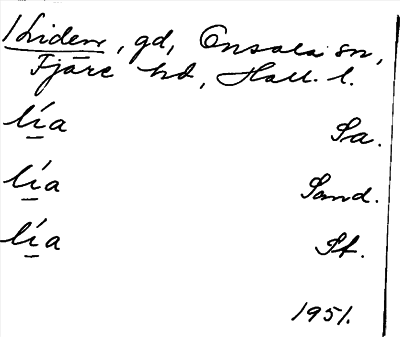 Liden, gd, Onsala sn,
Fjäre hd, Hall. l.
lía Sa.
lía Sand.
lía St.
1951.